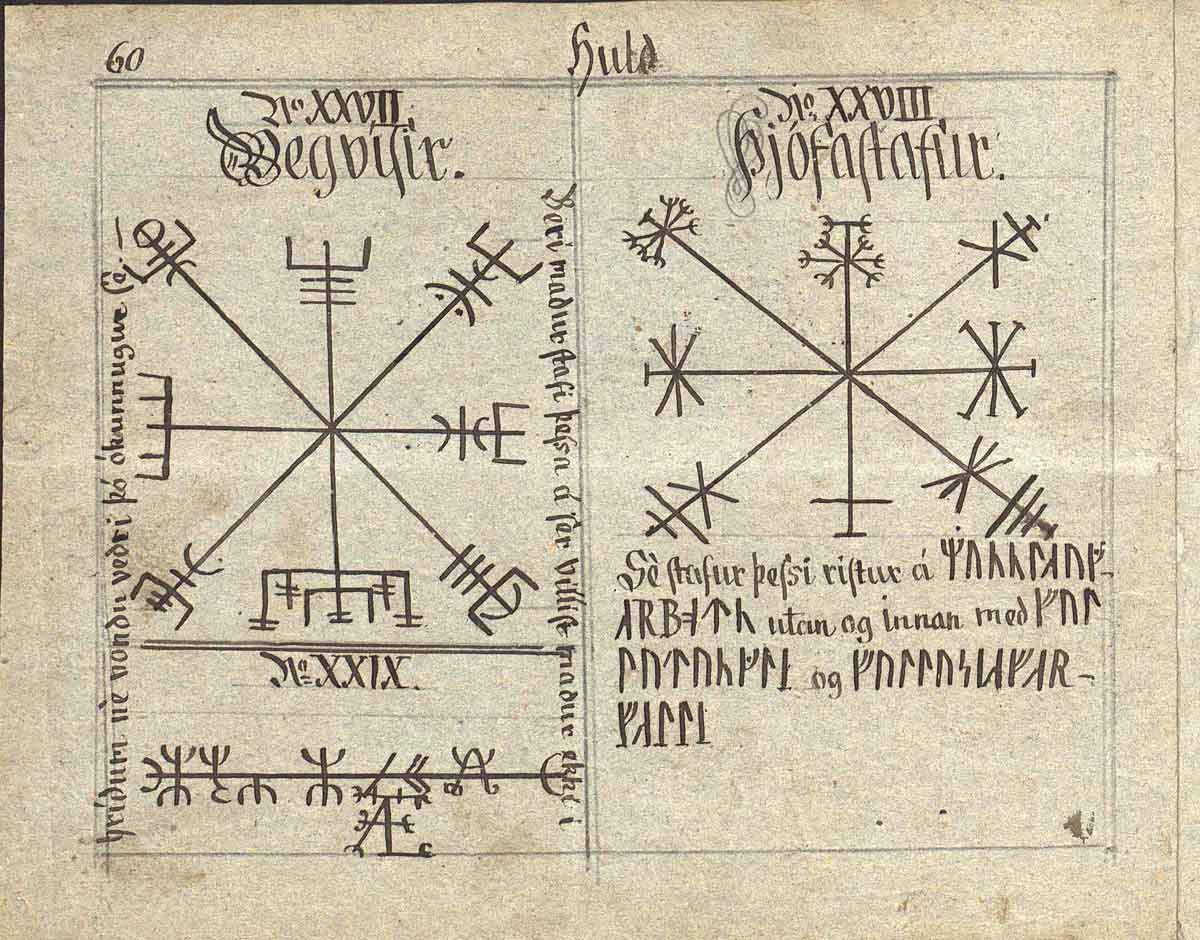 60
Huld
No XXVII.
Vegvísir.
Beri madur stafi þessa á sér villist madur ekki í
hrídum né vondu vedri þó ókunnugur sé.—
No XXIX.
No XXVIII.
Þjófastafur.
Sé stafur þessi ristur á ᛘᚢᚿᚿᛚᛅᚢᚵ-
ᛅᚱᛒᚮᛏᚿ utan og innan med ᚠᚢᛚ
ᛚᚢᛏᚢᚿᚵᛚᛁ og ᚠᚢᛚᛚᚢᛋᛁᛅᚠᛅᚱ-
ᚠᛅᛚᛚᛁ